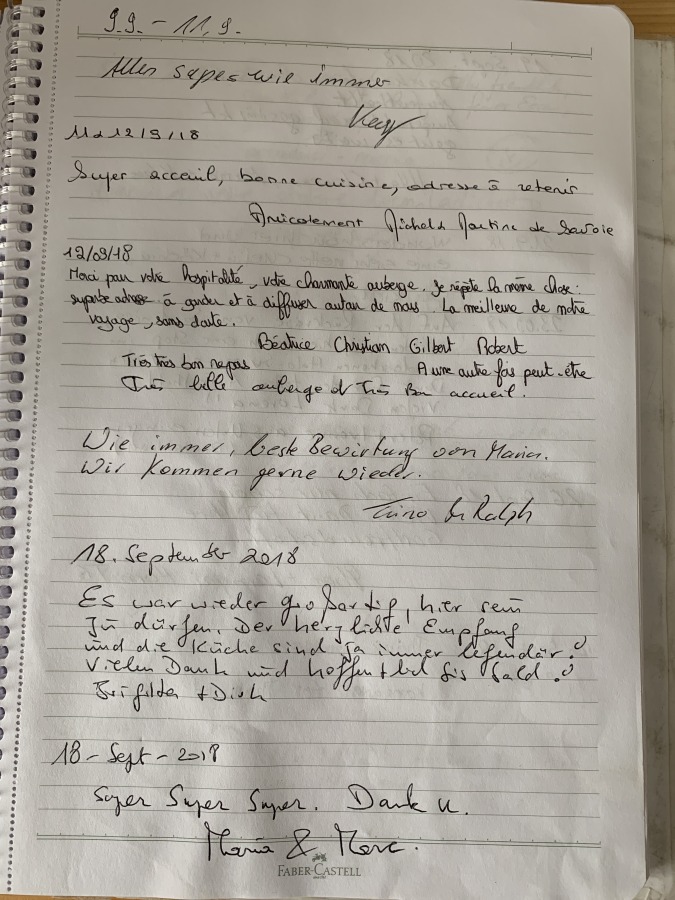 9.9. - 11.9.
Alles super wie immer
Ma 12/9/18
Super acceuil, bonne cuisine, adresse à retenir
Amicalement Michel & Martine de Savoie
12/09/18
Merci pour votre hospitalité, votre charmante auberge. Je répète la même chose:
superbe adresse à garder et à diffuser autour de nous. La meilleure de notre
voyage, sans doute.
Béatrice Christian Gilbert Robert
Très très bon repas A une autre fois peut-être
Très belle auberge et Très Bon accueil.
Wie immer, beste Bewirtung von Maria.
Wir kommen gerne wieder.
& Ralph
18. September 2018
Es war wieder großartig, hier sein
zu dürfen. Der herzliche Empfang
und die Küche sind ja immer legendär!
Vielen Dank und hoffentlich bis bald!
+ Dirk
18 - Sept - 2018
Super Super Super. Dank u.
Maria & Marc.
FABER-CASTELL